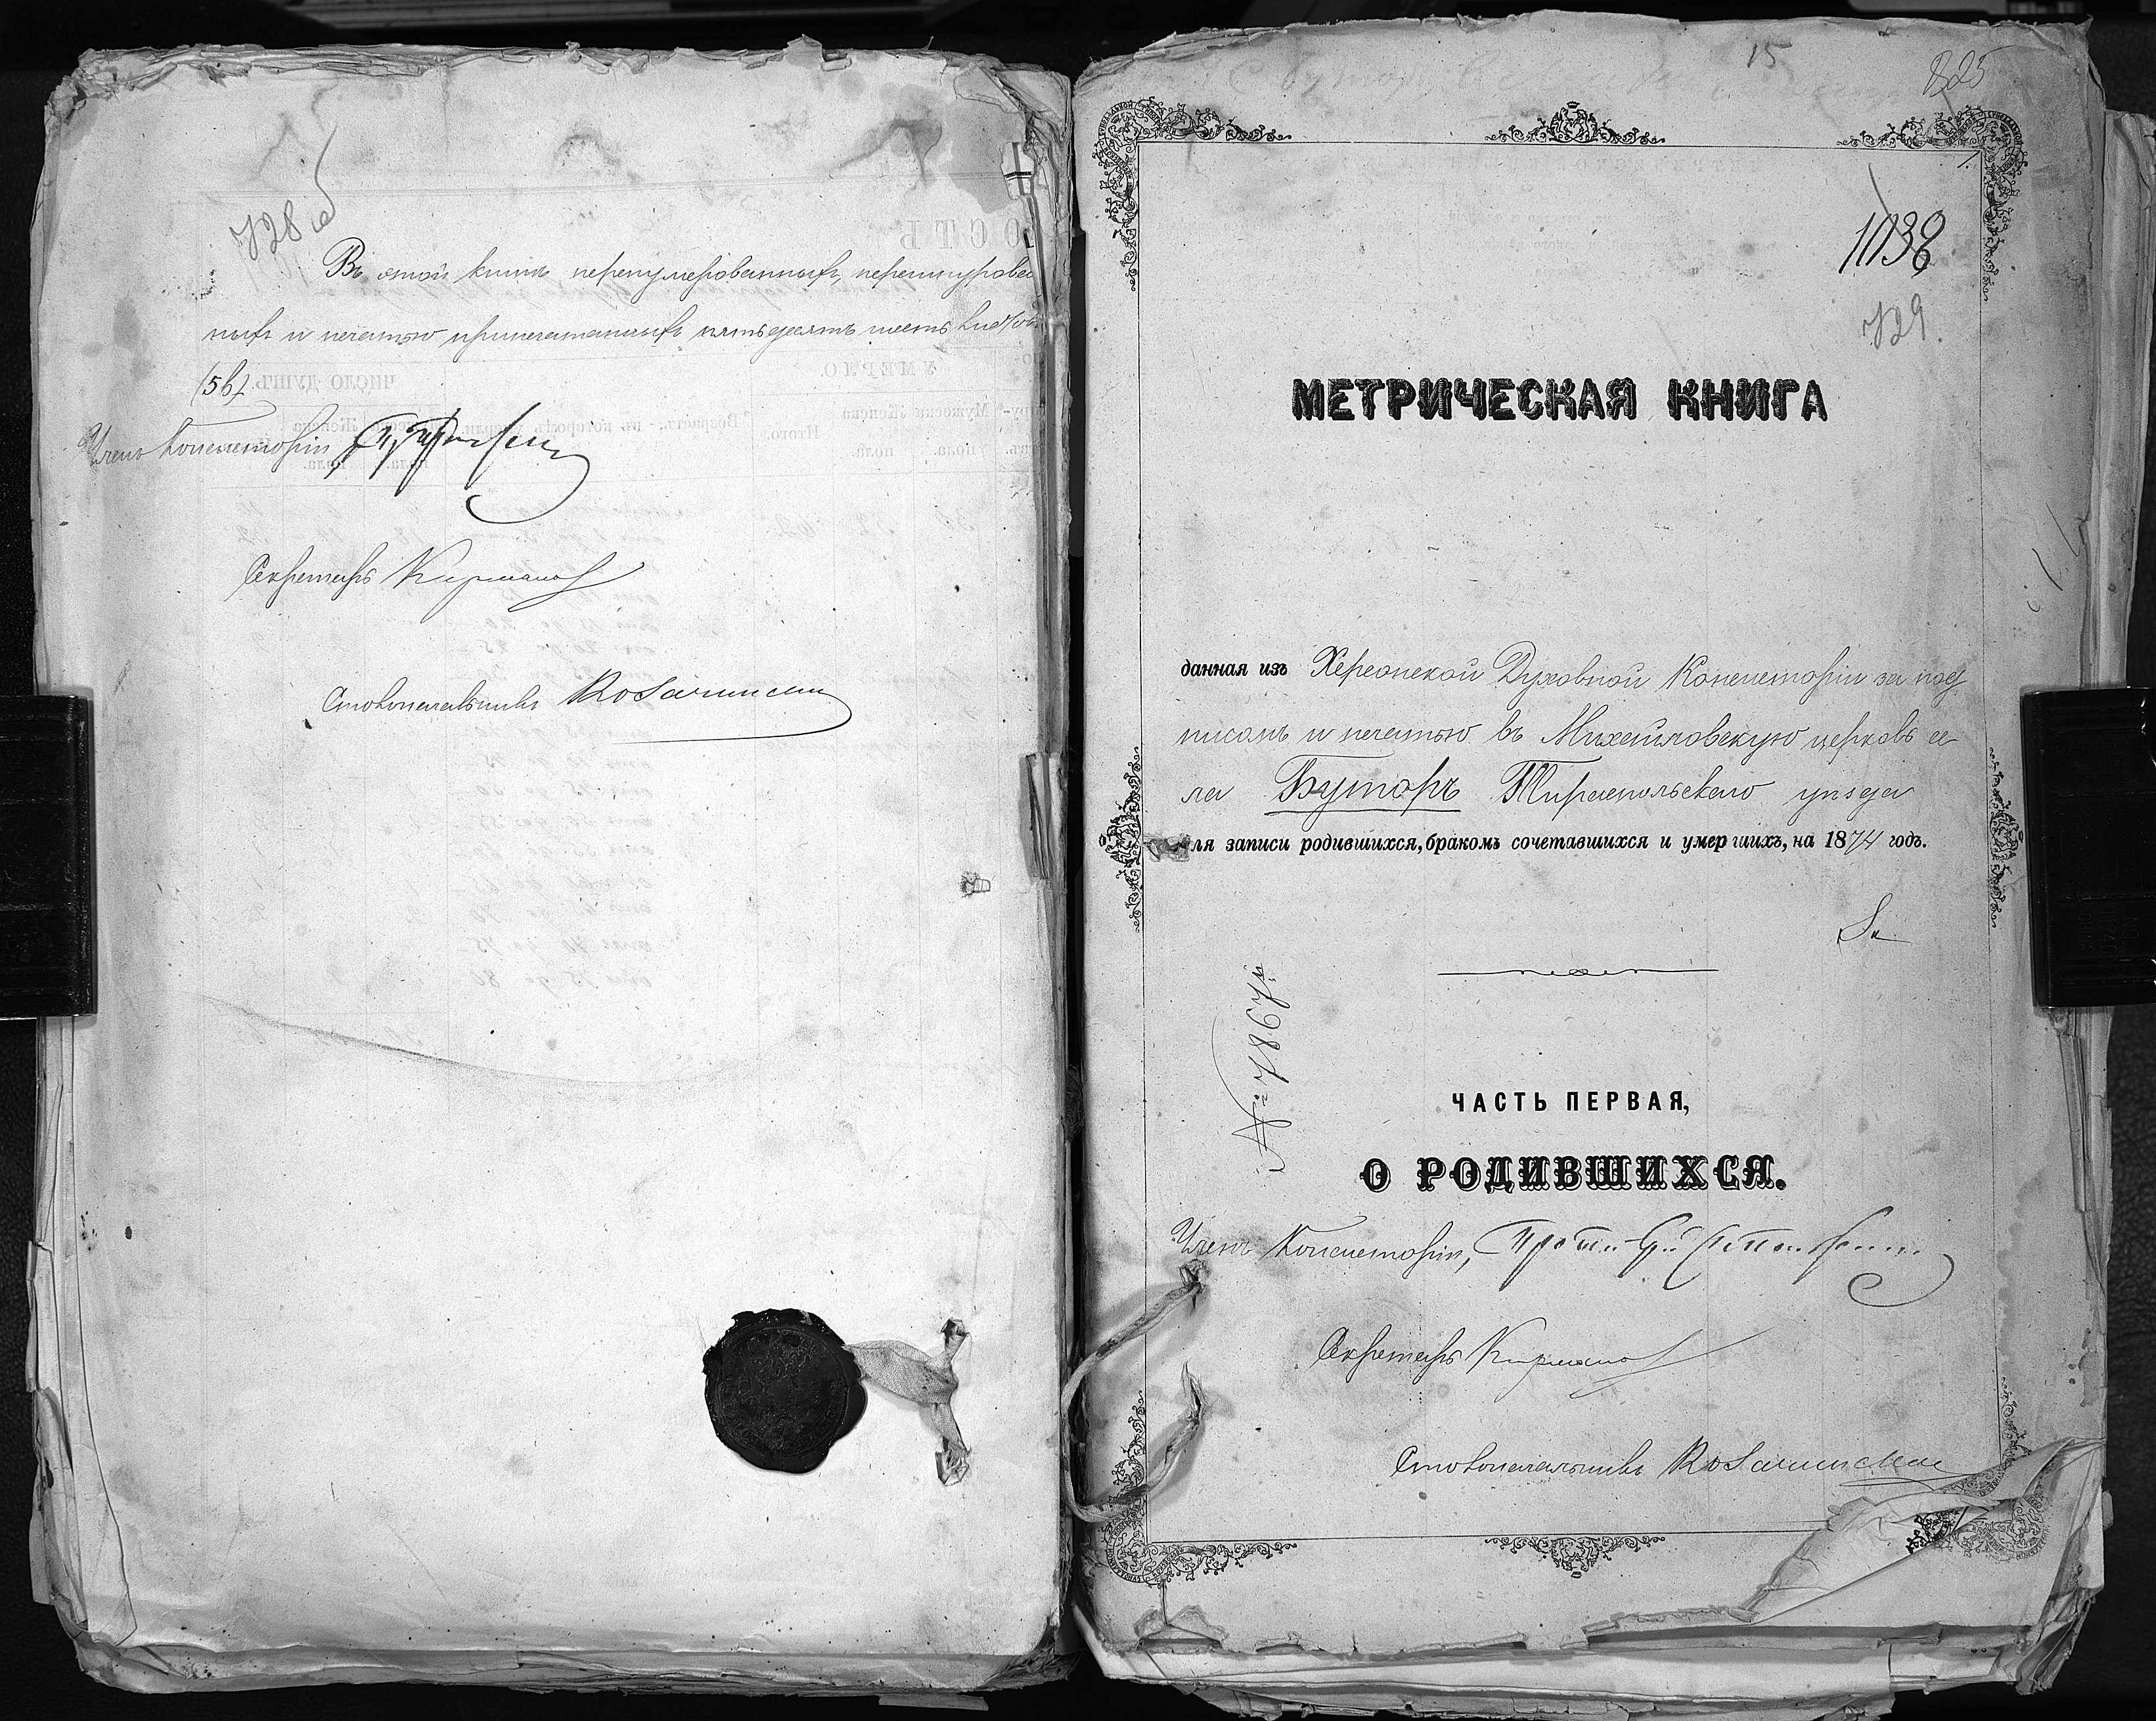 728 об
Въ этой книгѣ перенумерованныхъ, перешнурован
ныхъ и печатью припечатанныхъ пятьдесятъ шесть листовъ
(56).
Членъ Консисторіи
Секретарь
Столоначальникъ
15
825
1
1038
729.
МЕТРИЧЕСКАЯ КНИГА
данная изъ Херсонской Духовной Консисторіи за под
писомъ и печатью въ Михайловскую церковь се
ла Буторъ Тираспольскаго уѣзда
для записи родившихся, бракомъ сочетавшихся и умершихъ, на 1874 годъ.
№ 7867
ЧАСТЬ ПЕРВАЯ,
О РОДИВШИХСЯ.
Членъ Консисторіи,
Секретарь
Столоначальникъ